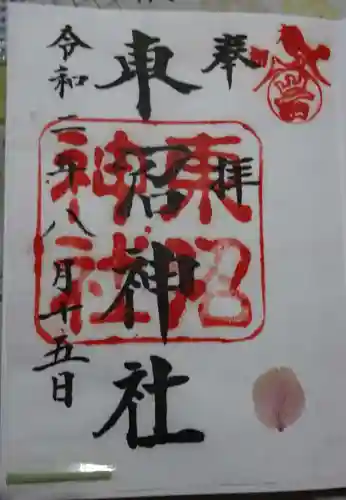 奉拝
東沼神社
東沼
神社
令和二年八月十五日